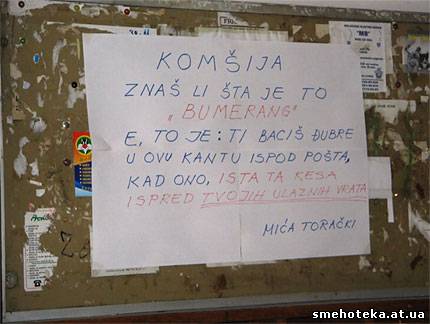 KOMŠIJA
ZNAŠ LI ŠTA JE TO
„BUMERANG"
E, TO JE: TI BACIŠ ĐUBRE
U OVU KANTU ISPOD POŠTA,
KAD ONO, ISTA TA KESA
ISPRED TVOJIH ULAZNIH VRATA
MIĆA TORAČKI
"MB"
smehoteka.at.ua